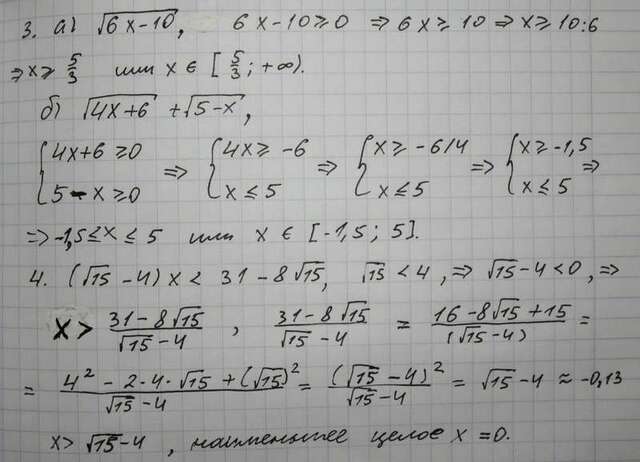 3. а) √(6x-10), 6x-10≥0 ⇒ 6x≥10 ⇒ x≥10:6
⇒ x≥ 5/3 или x ∈ [5/3; +∞).
б) √(4x+6) + √(5-x),
{4x+6≥0 ⇒ {4x≥-6 ⇒ {x≥-6/4 ⇒ {x≥-1,5 ⇒
{5-x≥0 {x≤5 {x≤5 {x≤5
⇒ -1,5≤x≤5 или x ∈ [-1,5; 5].
4. (√15-4)x < 31-8√15, √15<4, ⇒ √15-4<0, ⇒
x > (31-8√15)/(√15-4), (31-8√15)/(√15-4) = (16-8√15+15)/(√15-4) =
= (4²-2·4·√15+(√15)²)/(√15-4) = (√15-4)²/(√15-4) = √15-4 ≈ -0,13
x > √15-4, наименьшее целое x = 0.